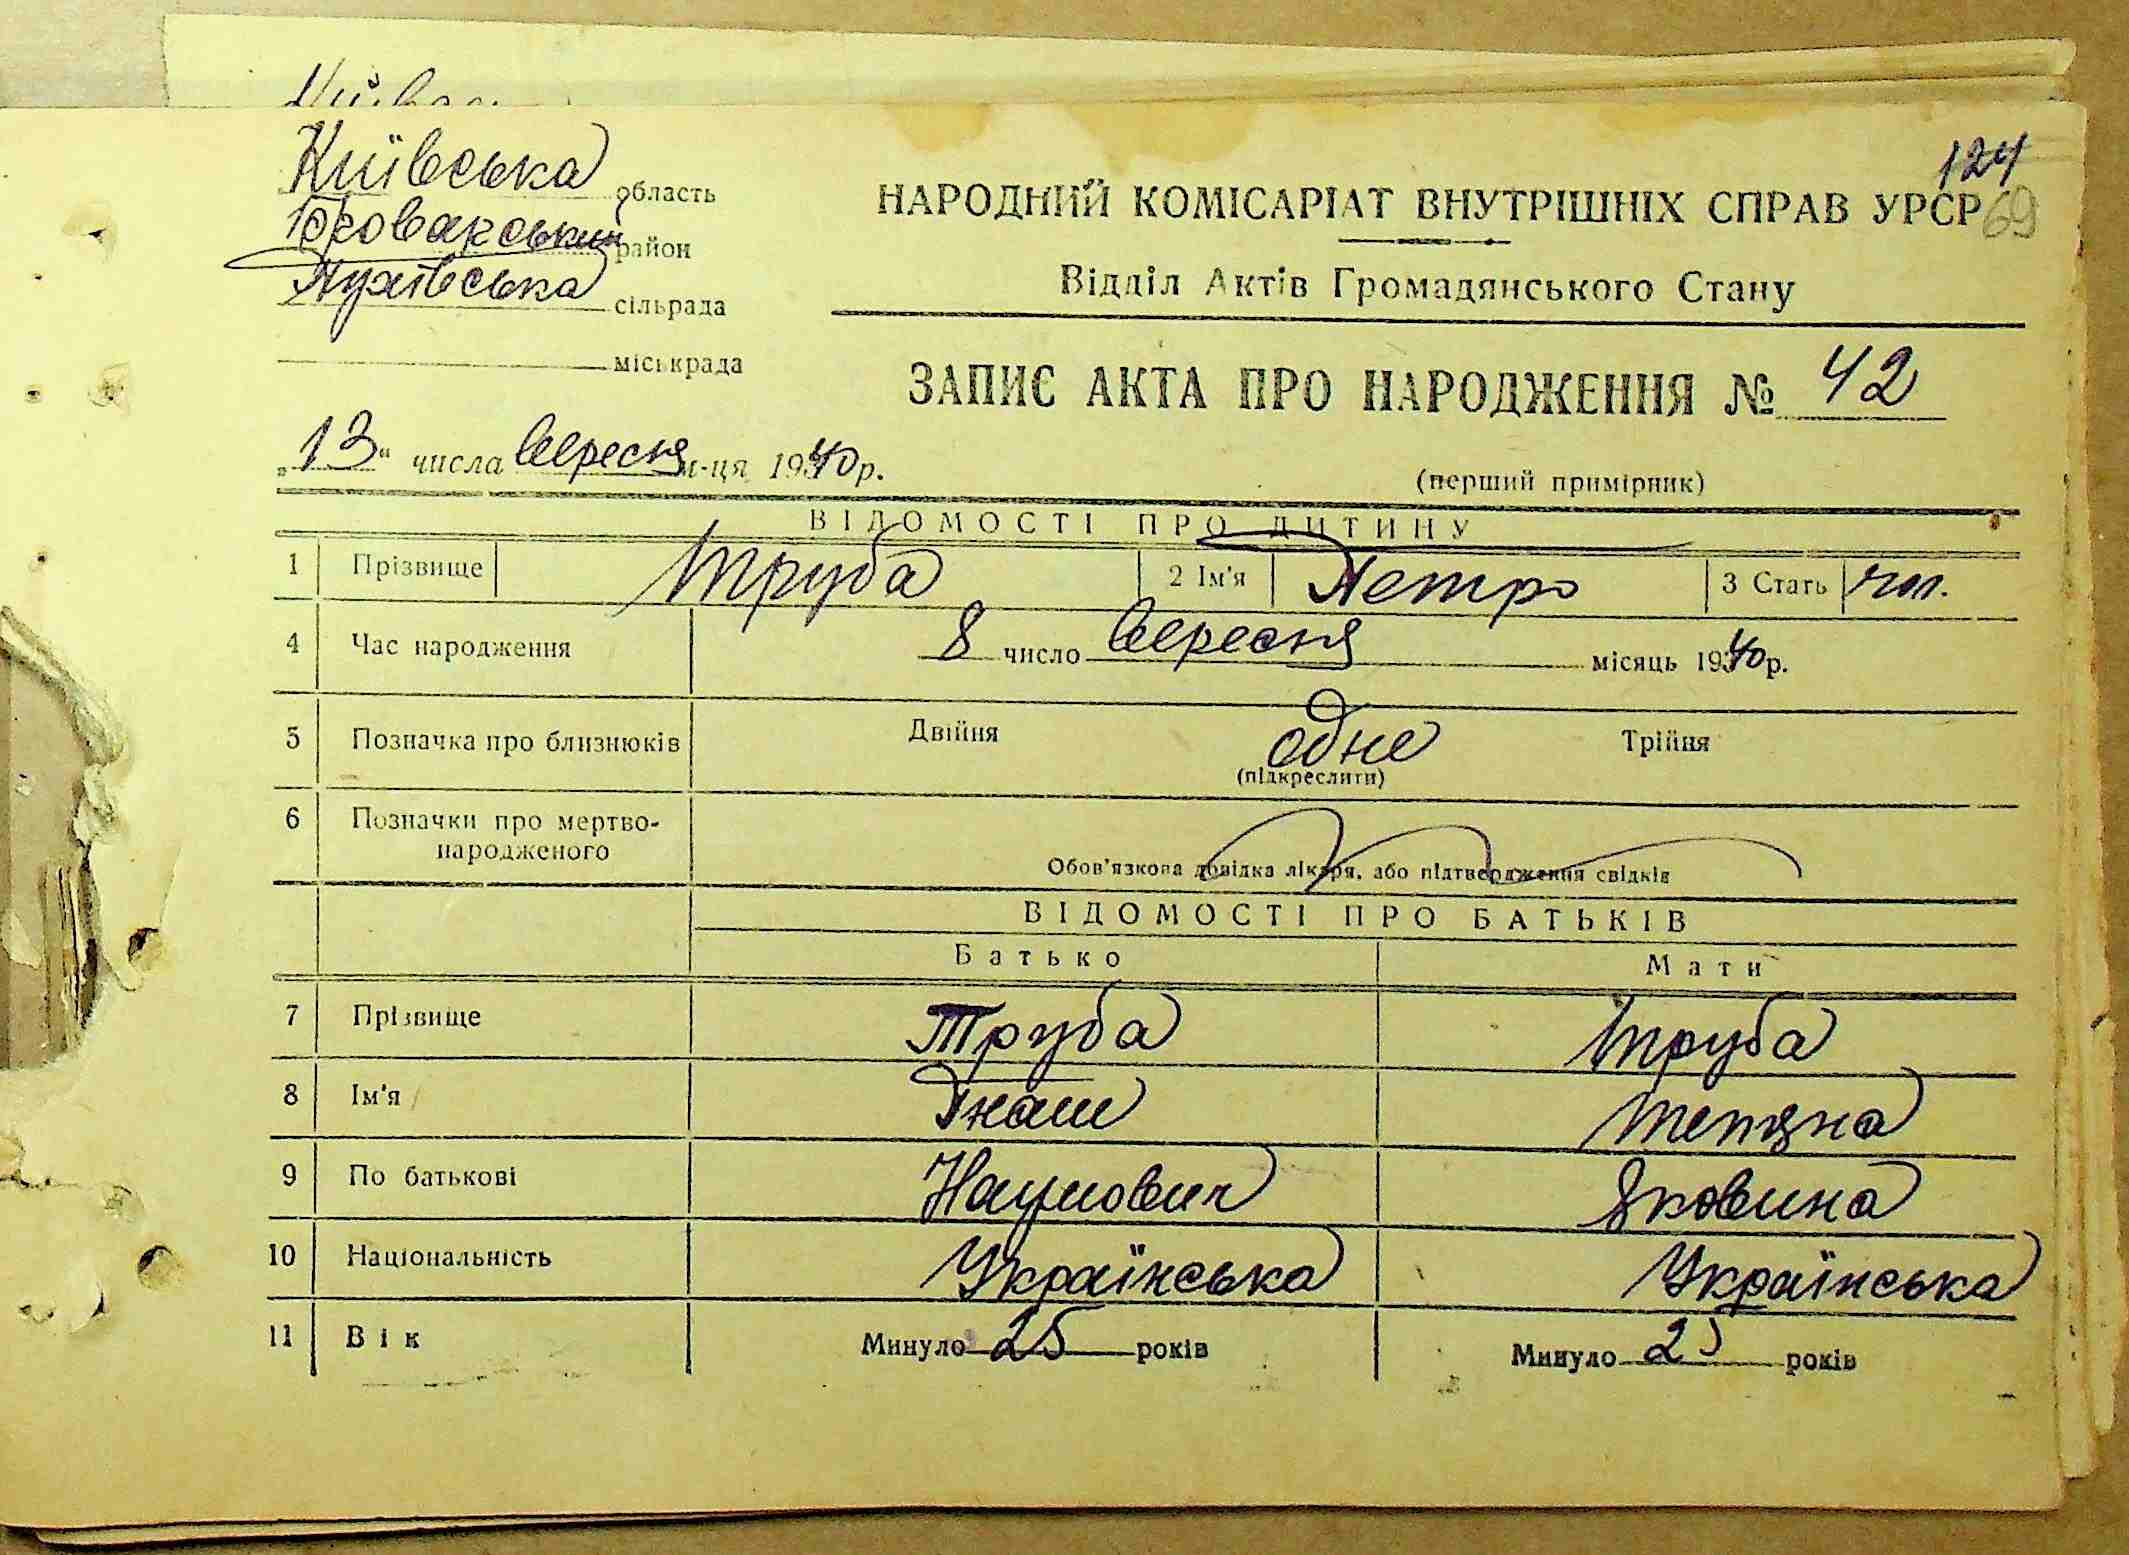 Київська область
Броварський район
Пухівська сільрада
міськрада
124
69
НАРОДНИЙ КОМІСАРІАТ ВНУТРІШНІХ СПРАВ УРСР
Відділ Актів Громадянського Стану
ЗАПИС АКТА ПРО НАРОДЖЕННЯ № 42
„13“ числа Вересня м-ця 1940 р.
(перший примірник)
ВІДОМОСТІ ПРО ДИТИНУ
1 Прізвище Труба 2 Ім'я Петро 3 Стать чол.
4 Час народження 8 число Вересня місяць 1940 р.
5 Позначка про близнюків Двійня одне Трійня
(підкреслити)
6 Позначки про мертво-
народженого
Обов'язкова довідка лікаря, або підтвердження свідків
ВІДОМОСТІ ПРО БАТЬКІВ
Батько Мати
7 Прізвище Труба Труба
8 Ім'я Гнат Тетяна
9 По батькові Наумович Яковина
10 Національність Українська Українська
11 Вік Минуло 25 років Минуло 25 років